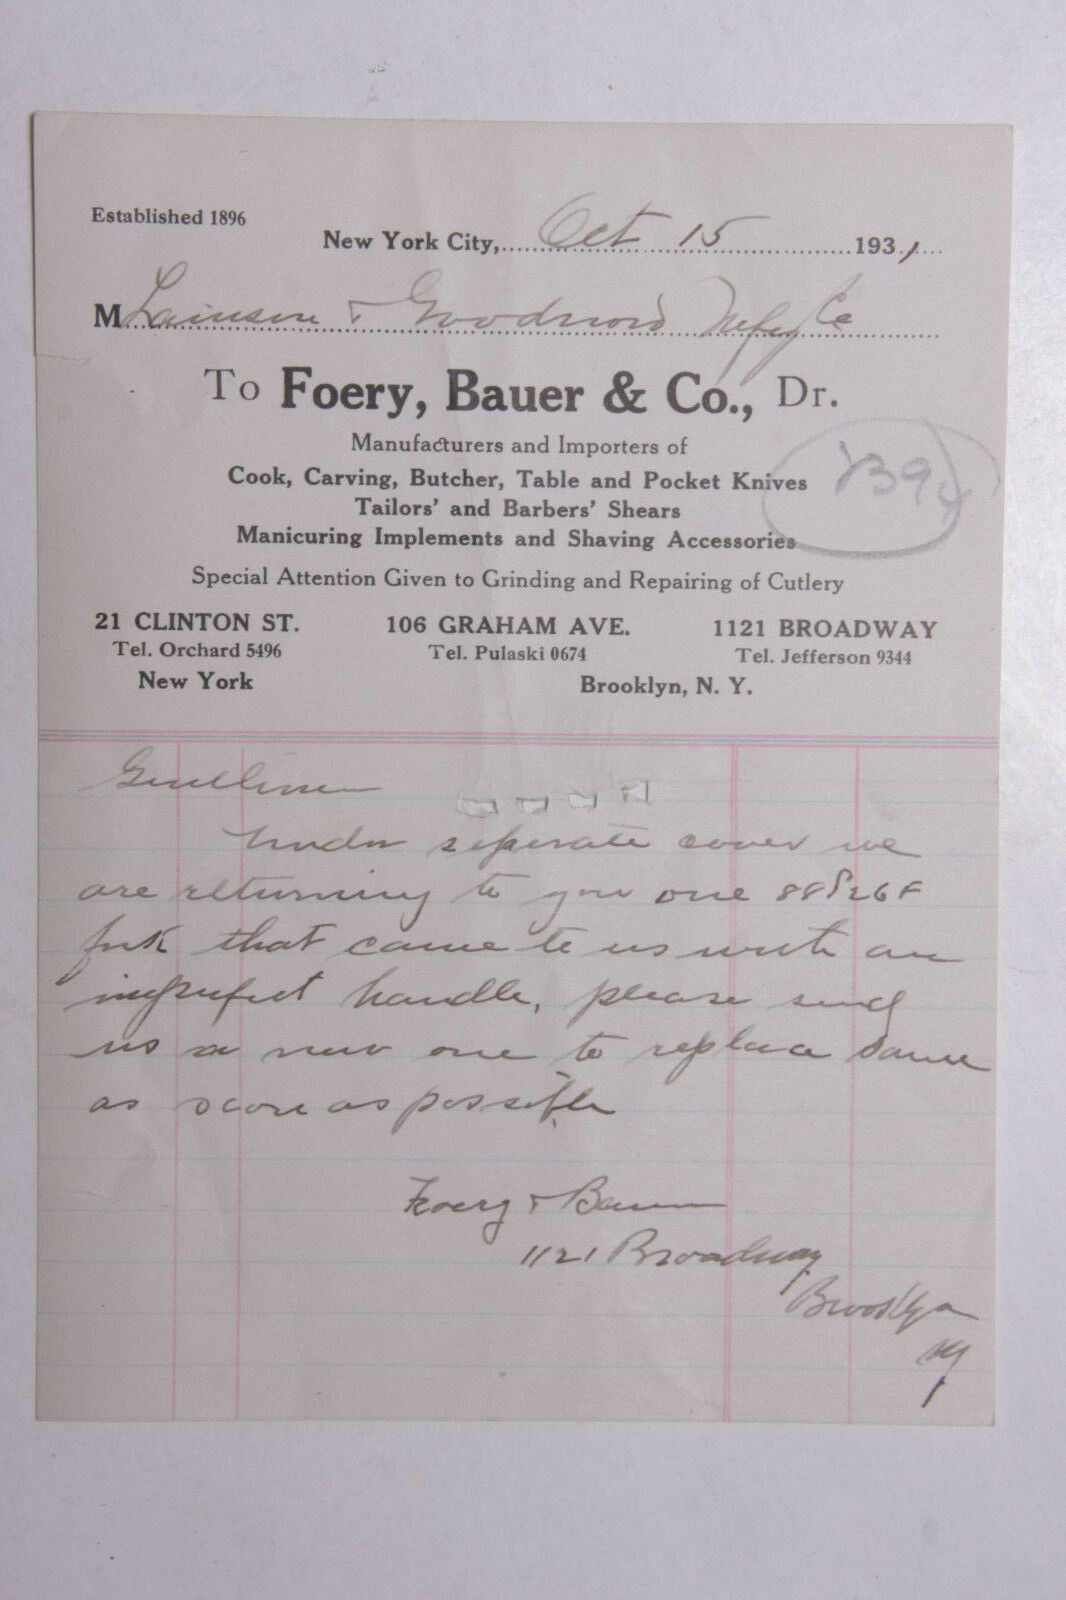 Established 1896
New York City, Oct 15 1931
M Lainson & Goodnow Mfg Co
To Foery, Bauer & Co., Dr.
Manufacturers and Importers of
Cook, Carving, Butcher, Table and Pocket Knives
Tailors' and Barbers' Shears
Manicuring Implements and Shaving Accessories
Special Attention Given to Grinding and Repairing of Cutlery
21 CLINTON ST. 106 GRAHAM AVE. 1121 BROADWAY
Tel. Orchard 5496 Tel. Pulaski 0674 Tel. Jefferson 9344
New York Brooklyn, N. Y.
Gentlemen
Under seperate cover we
are returning to you one
fork that came to us with an
imperfect handle, please send
us a new one to replace same
as soon as possible
Foery & Bauer
1121 Broadway
Brooklyn
NY